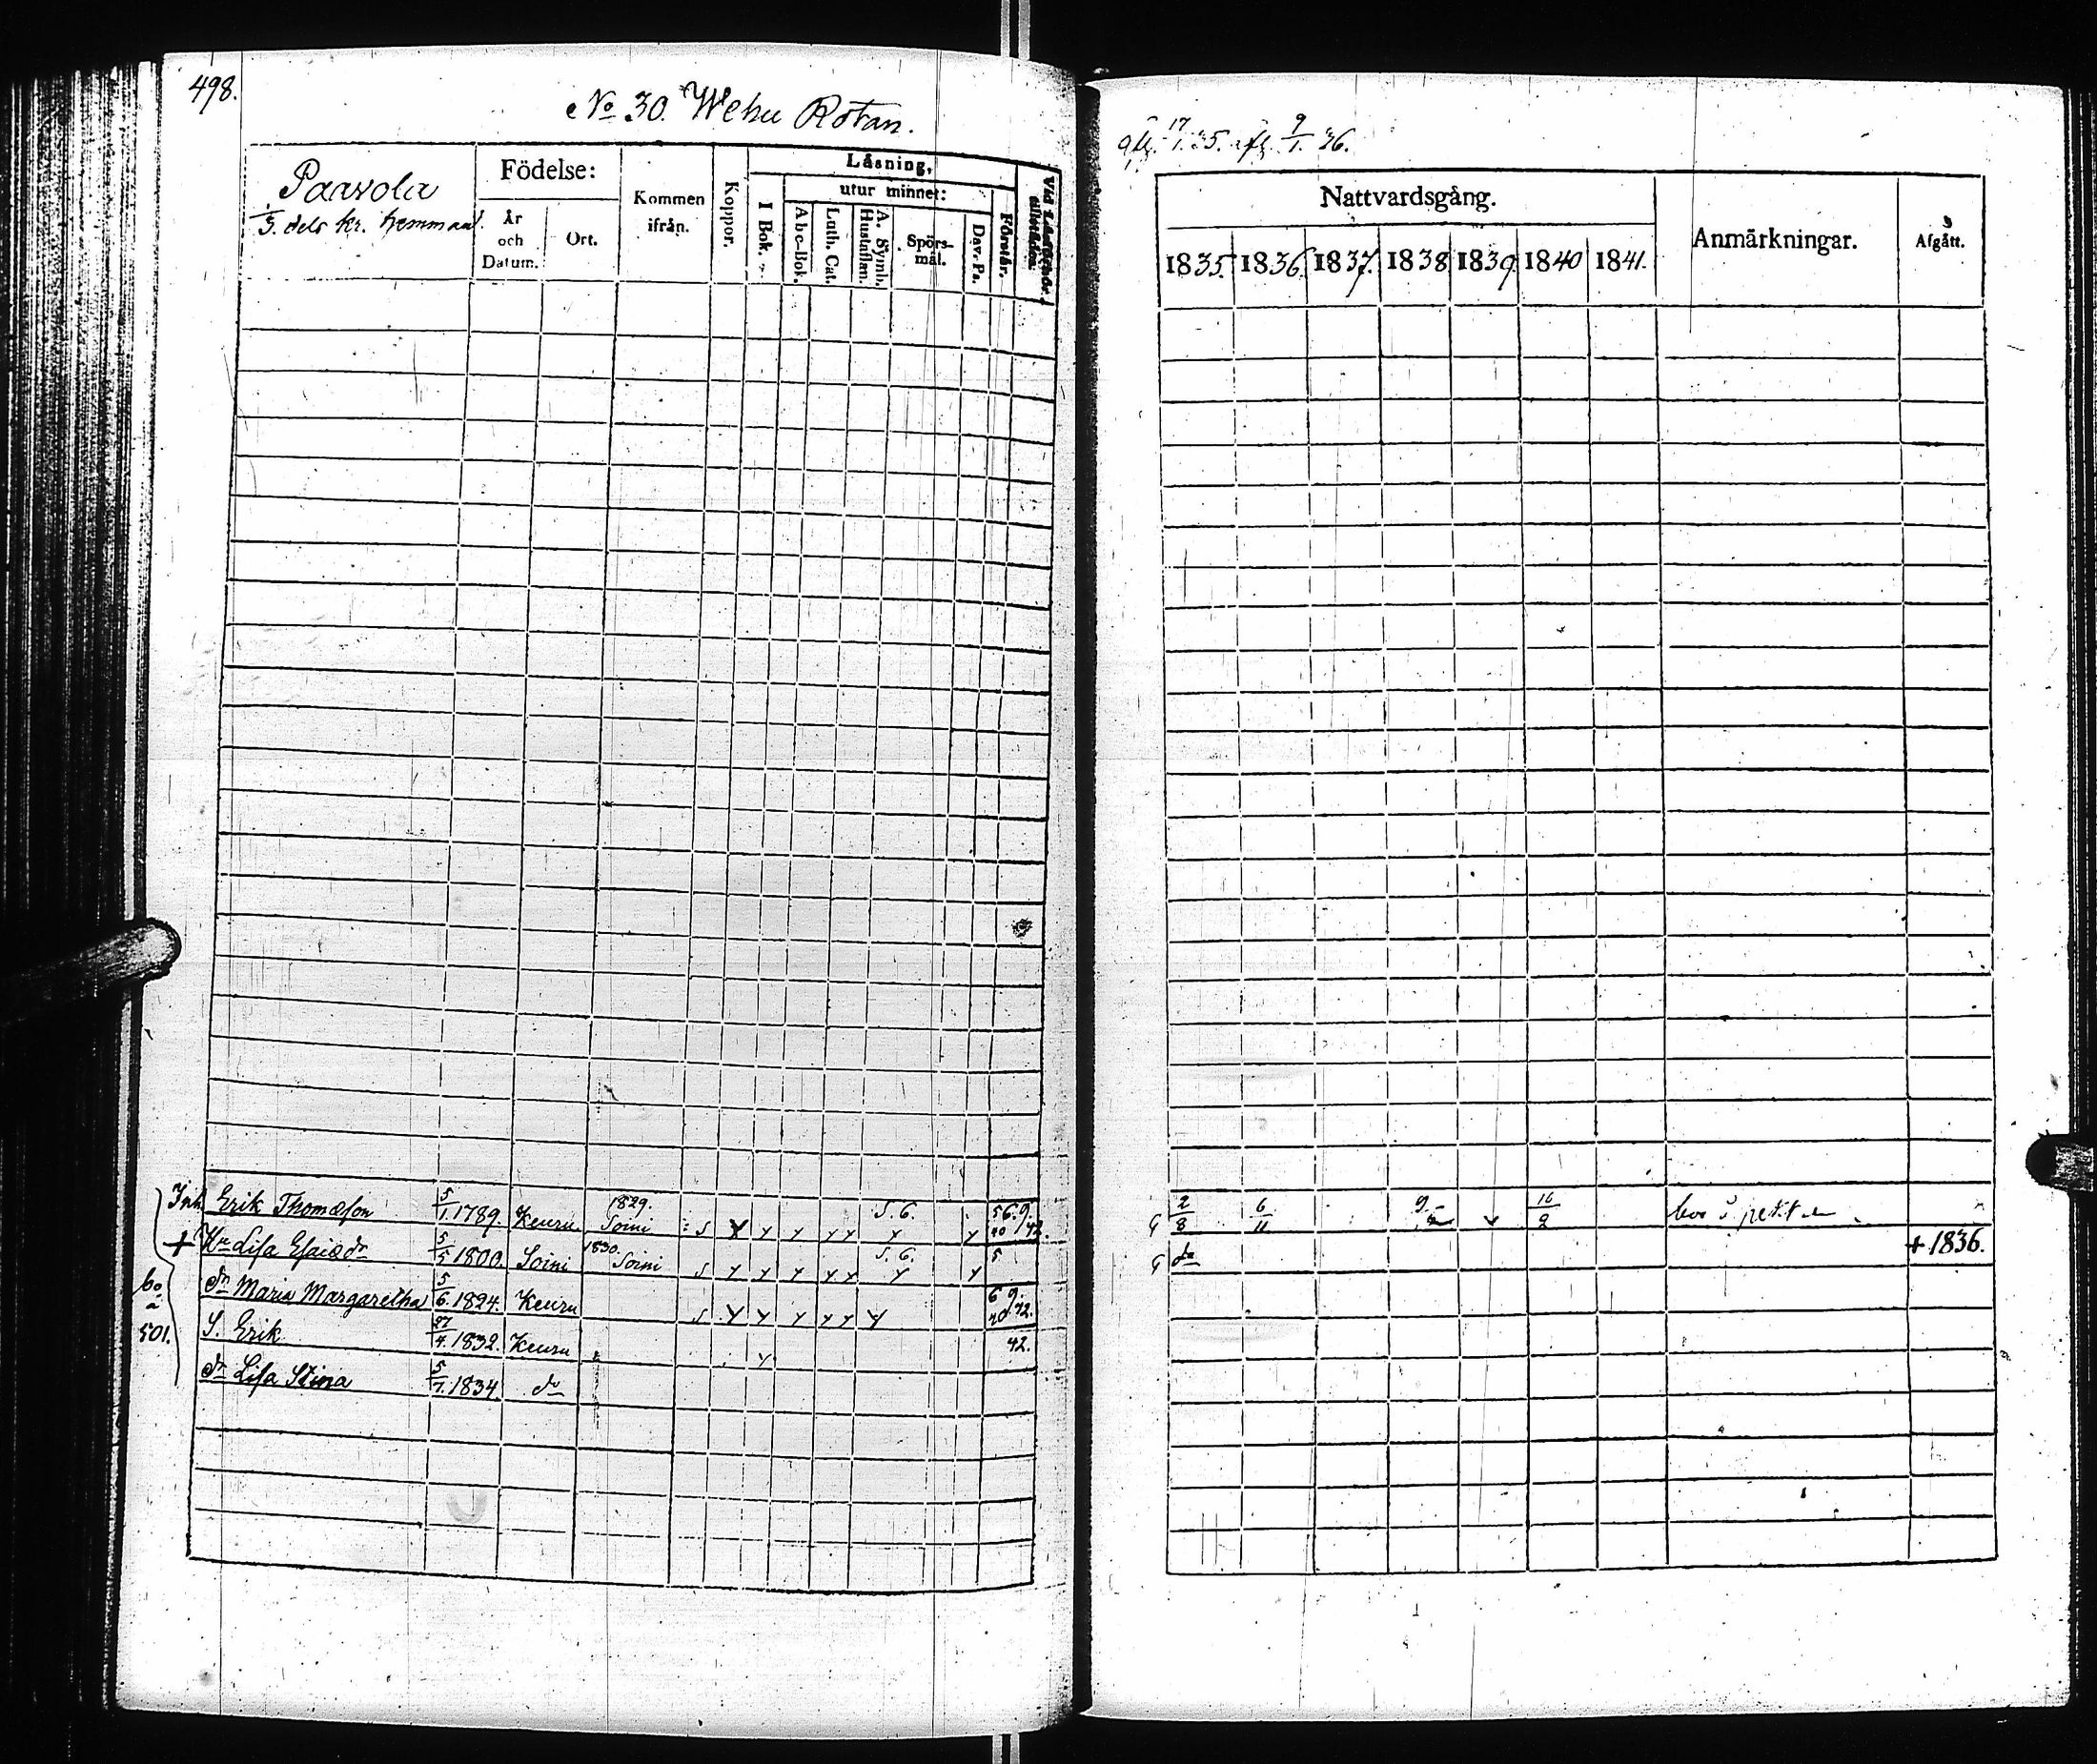 498.
No 30. Wehu Rotan.
Paavola
1/3. dels kr. hemman.
Födelse:
År och Datum.
Ort.
Kommen ifrån.
Koppor.
Läsning,
I Bok.
utur minnet:
Abc-Bok.
Luth. Cat.
A. Symb. Hustaflan.
Spörs-mål.
Dav. Ps.
Förstår.
Inh. Erik Thomæson 5/1. 1789. Keuru 1829. Soini s y y y y y 5. 6. y y 5 6. 9. 40 /42.
+ Hu Lisa Esaiædr 5/5 1800. Soini 1830. Soini s y y y y y 5. 6. y y 5
dr Maria Margaretha 5/6. 1824. Keuru s y y y y y y 6 9. 40 42.
S. Erik 27/4. 1832. Keuru y 42.
dr Lisa Stina 5/7. 1834. do
bo
a
501.
17/1. 35. 9/1. 36.
Nattvardsgång.
1835. 1836. 1837. 1838 1839. 1840 1841.
Anmärkningar.
Afgått.
2/8 6/11 9 16/2
do + 1836.